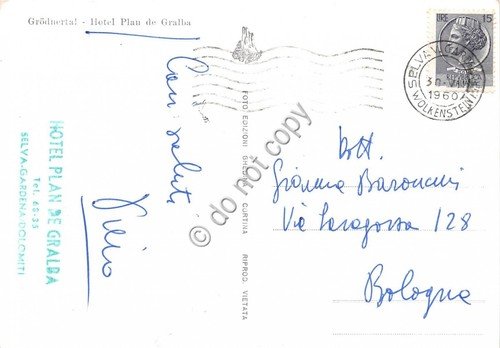 Grödnertal - Hotel Plan de Gralba
LIRE 15
SELVA V. GARDENA
1960
WOLKENSTEIN
Cari saluti
HOTEL PLAN DE GRALBA
Tel. 68-35
SELVA-GARDENA (DOLOMITI)
FOTO EDIZIONI GHEDINA - CORTINA RIPROD. VIETATA
do not copy
Dott.
Gianna Baroncini
Via Saragozza 128
Bologna